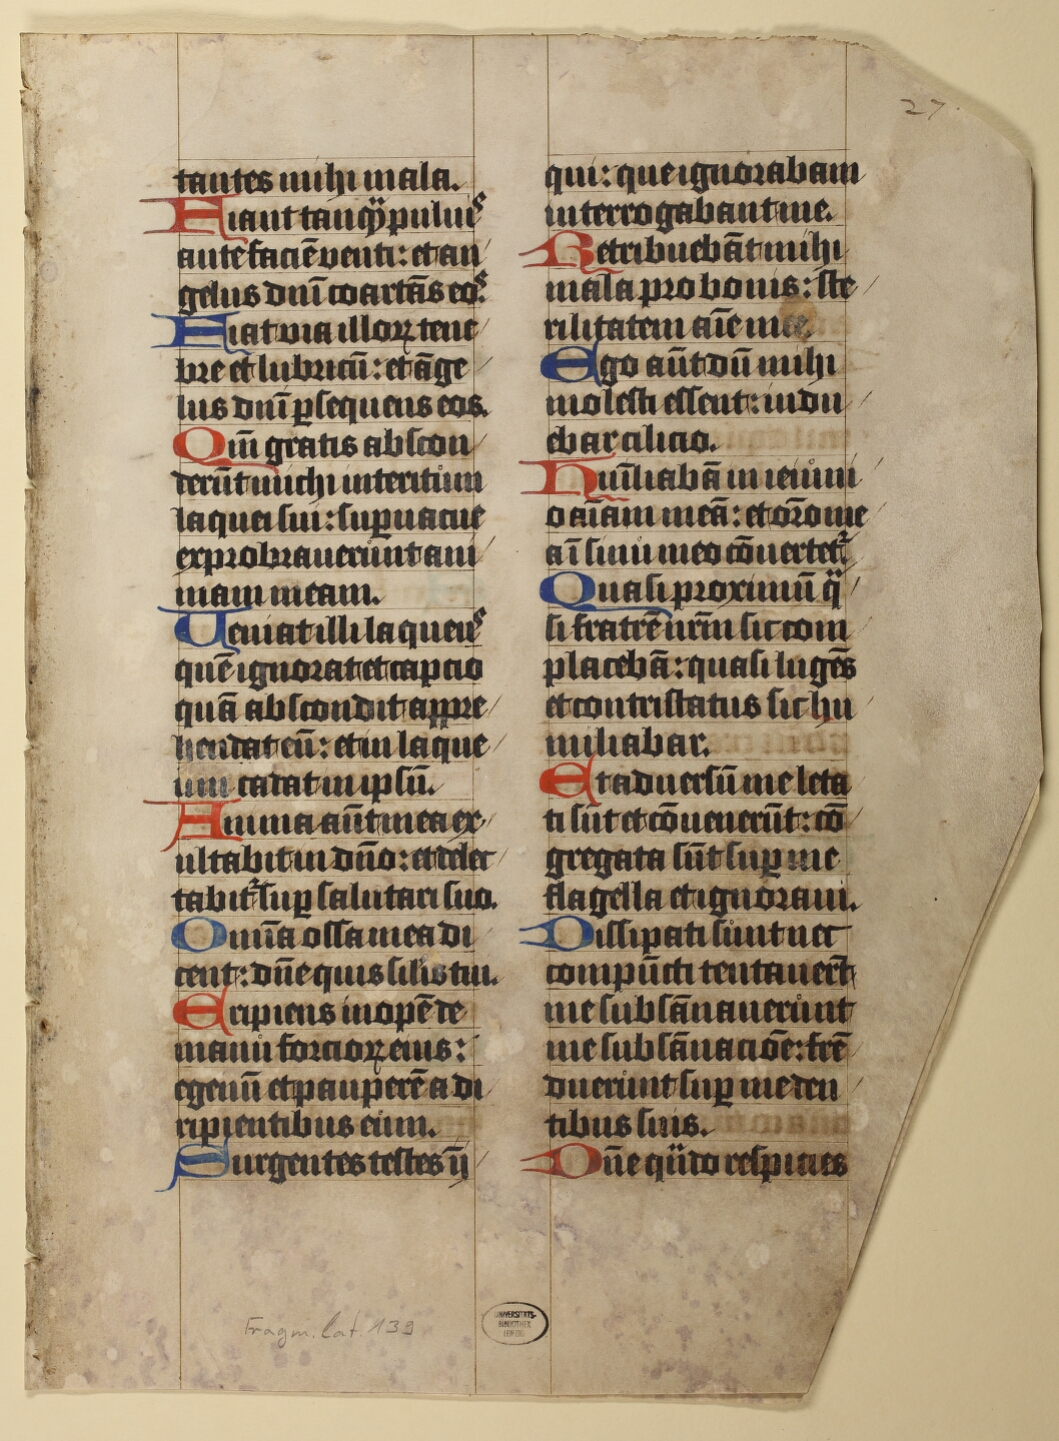 27
tantes michi mala.
Fiant tanqͣꝫ puluiꝰ
ante faciē venti: et an
gelus dn̄i coartās eoꝰ.
Fiat via illoꝝ tene
bre et lubricū: et āge
lus dn̄i ꝑsequens eos.
Qm̄ gratis abscon
derūt michi interitum
laquei sui: suꝑuacue
exprobrauerunt ani
mam meam.
Ueniat illi laqueuꝰ
quē ignorat et capcio
quā abscondit appre
hendat eū: et in laque
um cadat in ipsū.
Anima aūt mea ex
ultabit in dn̄o: et delec
tabit᷑ suꝑ salutari suo.
Omīa ossa mea di
cent: dn̄e quis silis tui.
Eripiens inopē de
manu forcioꝝ eius:
egenū et pauperē a di
ripientibus eum.
Surgentes testes iī
qui: que ignorabam
interrogabant me.
Retribuebāt mihi
mala pro bonis: ste
rilitatem aīe mee.
Ego aūt dū mihi
molesti essent: indu
ebar cilicio.
Huīliabā in ieiuni
o aīam meā: et or̄o me
a ī sinu meo cōuertet᷑.
Quasi proximū qͣ
si fratrē nr̄m sic com
placebā: quasi lugēs
et contristatus sic hu
miliabar.
Et aduersū me leta
ti sūt et cōuenerūt: cō
gregata sūt suꝑ me
flagella et ignoraui.
Dissipati sunt nec
compūcti tentauerūt
me subsānauerunt
me subsānacōe: frē
duerunt suꝑ me den
tibus suis.
Dn̄e qͣndo respicies
Fragm. lat. 139
UNIVERSITÄTS-
BIBLIOTHEK
LEIPZIG